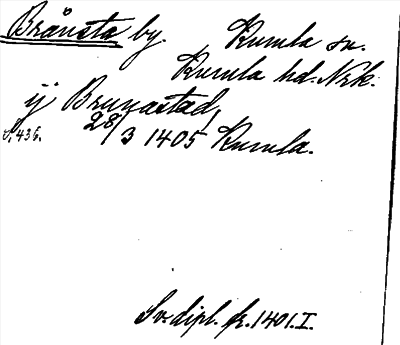 Brånsta by. Kumla sn.
Kumla hd. Nrk.
ij Brunastad,
S. 436. 28/3 1405 Kumla.
Sv. dipl. fr. 1401. I.